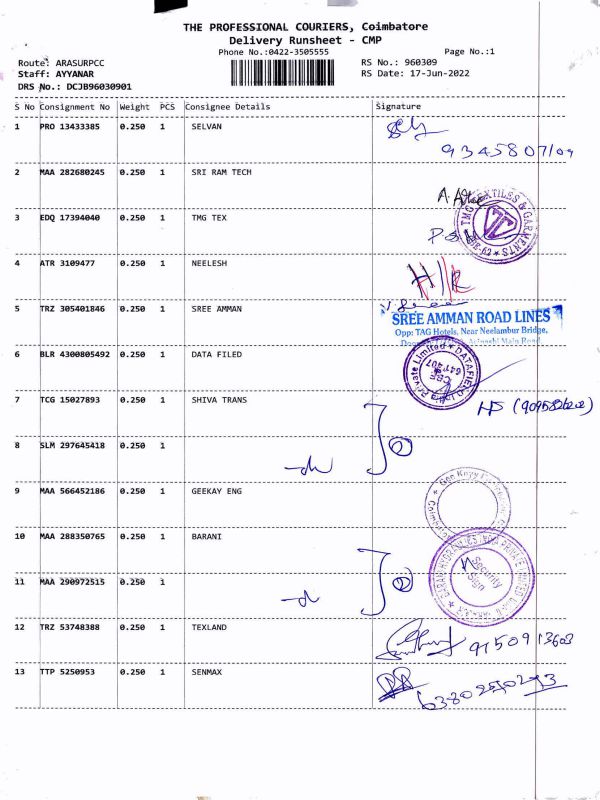 THE PROFESSIONAL COURIERS, Coimbatore
Delivery Runsheet - CMP
Phone No.:0422-3505555
Page No.:1
Route: ARASURPCC
RS No.: 960309
Staff: AYYANAR
RS Date: 17-Jun-2022
DRS No.: DCJB96030901
S No Consignment No Weight PCS Consignee Details Signature
1 PRO 13433385 0.250 1 SELVAN
2 MAA 282680245 0.250 1 SRI RAM TECH
3 EDQ 17394040 0.250 1 TMG TEX
TMG TEXTILES & GARMENTS
4 ATR 3109477 0.250 1 NEELESH
5 TRZ 305401846 0.250 1 SREE AMMAN
SREE AMMAN ROAD LINES
Opp: TAG Hotels, Near Neelambur Bridge,
Main Road
6 BLR 4300805492 0.250 1 DATA FILED
Private Limited
CBE
641 407
7 TCG 15027893 0.250 1 SHIVA TRANS
8 SLM 297645418 0.250 1
9 MAA 566452186 0.250 1 GEEKAY ENG
10 MAA 288350765 0.250 1 BARANI
Security
Sign
11 MAA 290972515 0.250 1
12 TRZ 53748388 0.250 1 TEXLAND
9150913603
13 TTP 5250953 0.250 1 SENMAX